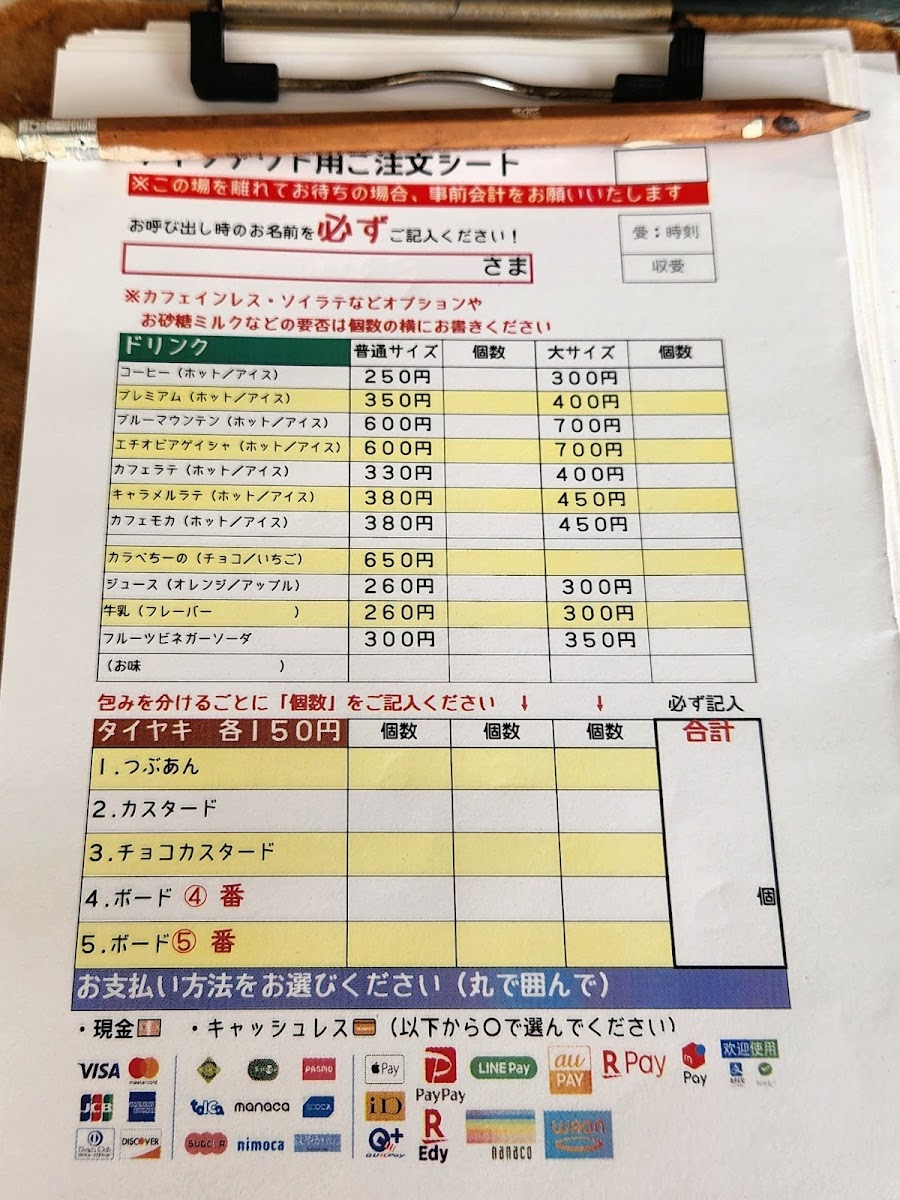 テイクアウト用ご注文シート
※この場を離れてお待ちの場合、事前会計をお願いいたします
お呼び出し時のお名前を必ずご記入ください！
さま
受：時刻
収受
※カフェインレス・ソイラテなどオプションや
お砂糖ミルクなどの要否は個数の横にお書きください
ドリンク 普通サイズ 個数 大サイズ 個数
コーヒー（ホット／アイス） 250円 300円
プレミアム（ホット／アイス） 350円 400円
ブルーマウンテン（ホット／アイス） 600円 700円
エチオピアゲイシャ（ホット／アイス） 600円 700円
カフェラテ（ホット／アイス） 330円 400円
キャラメルラテ（ホット／アイス） 380円 450円
カフェモカ（ホット／アイス） 380円 450円
カラぺちーの（チョコ／いちご） 650円
ジュース（オレンジ／アップル） 260円 300円
牛乳（フレーバー ） 260円 300円
フルーツビネガーソーダ 300円 350円
（お味 ）
包みを分けるごとに「個数」をご記入ください ↓ ↓ 必ず記入
タイヤキ 各150円 個数 個数 個数 合計
1.つぶあん
2.カスタード
3.チョコカスタード
4.ボード ④ 番
5.ボード⑤ 番
個
お支払い方法をお選びください（丸で囲んで）
・現金 ・キャッシュレス（以下から〇で選んでください）
VISA mastercard PASMO Pay PayPay LINE Pay au PAY R Pay Pay 欢迎使用
JCB toica manaca iD
Diners Club DISCOVER SUGOCA nimoca QUICPay R Edy nanaco waon